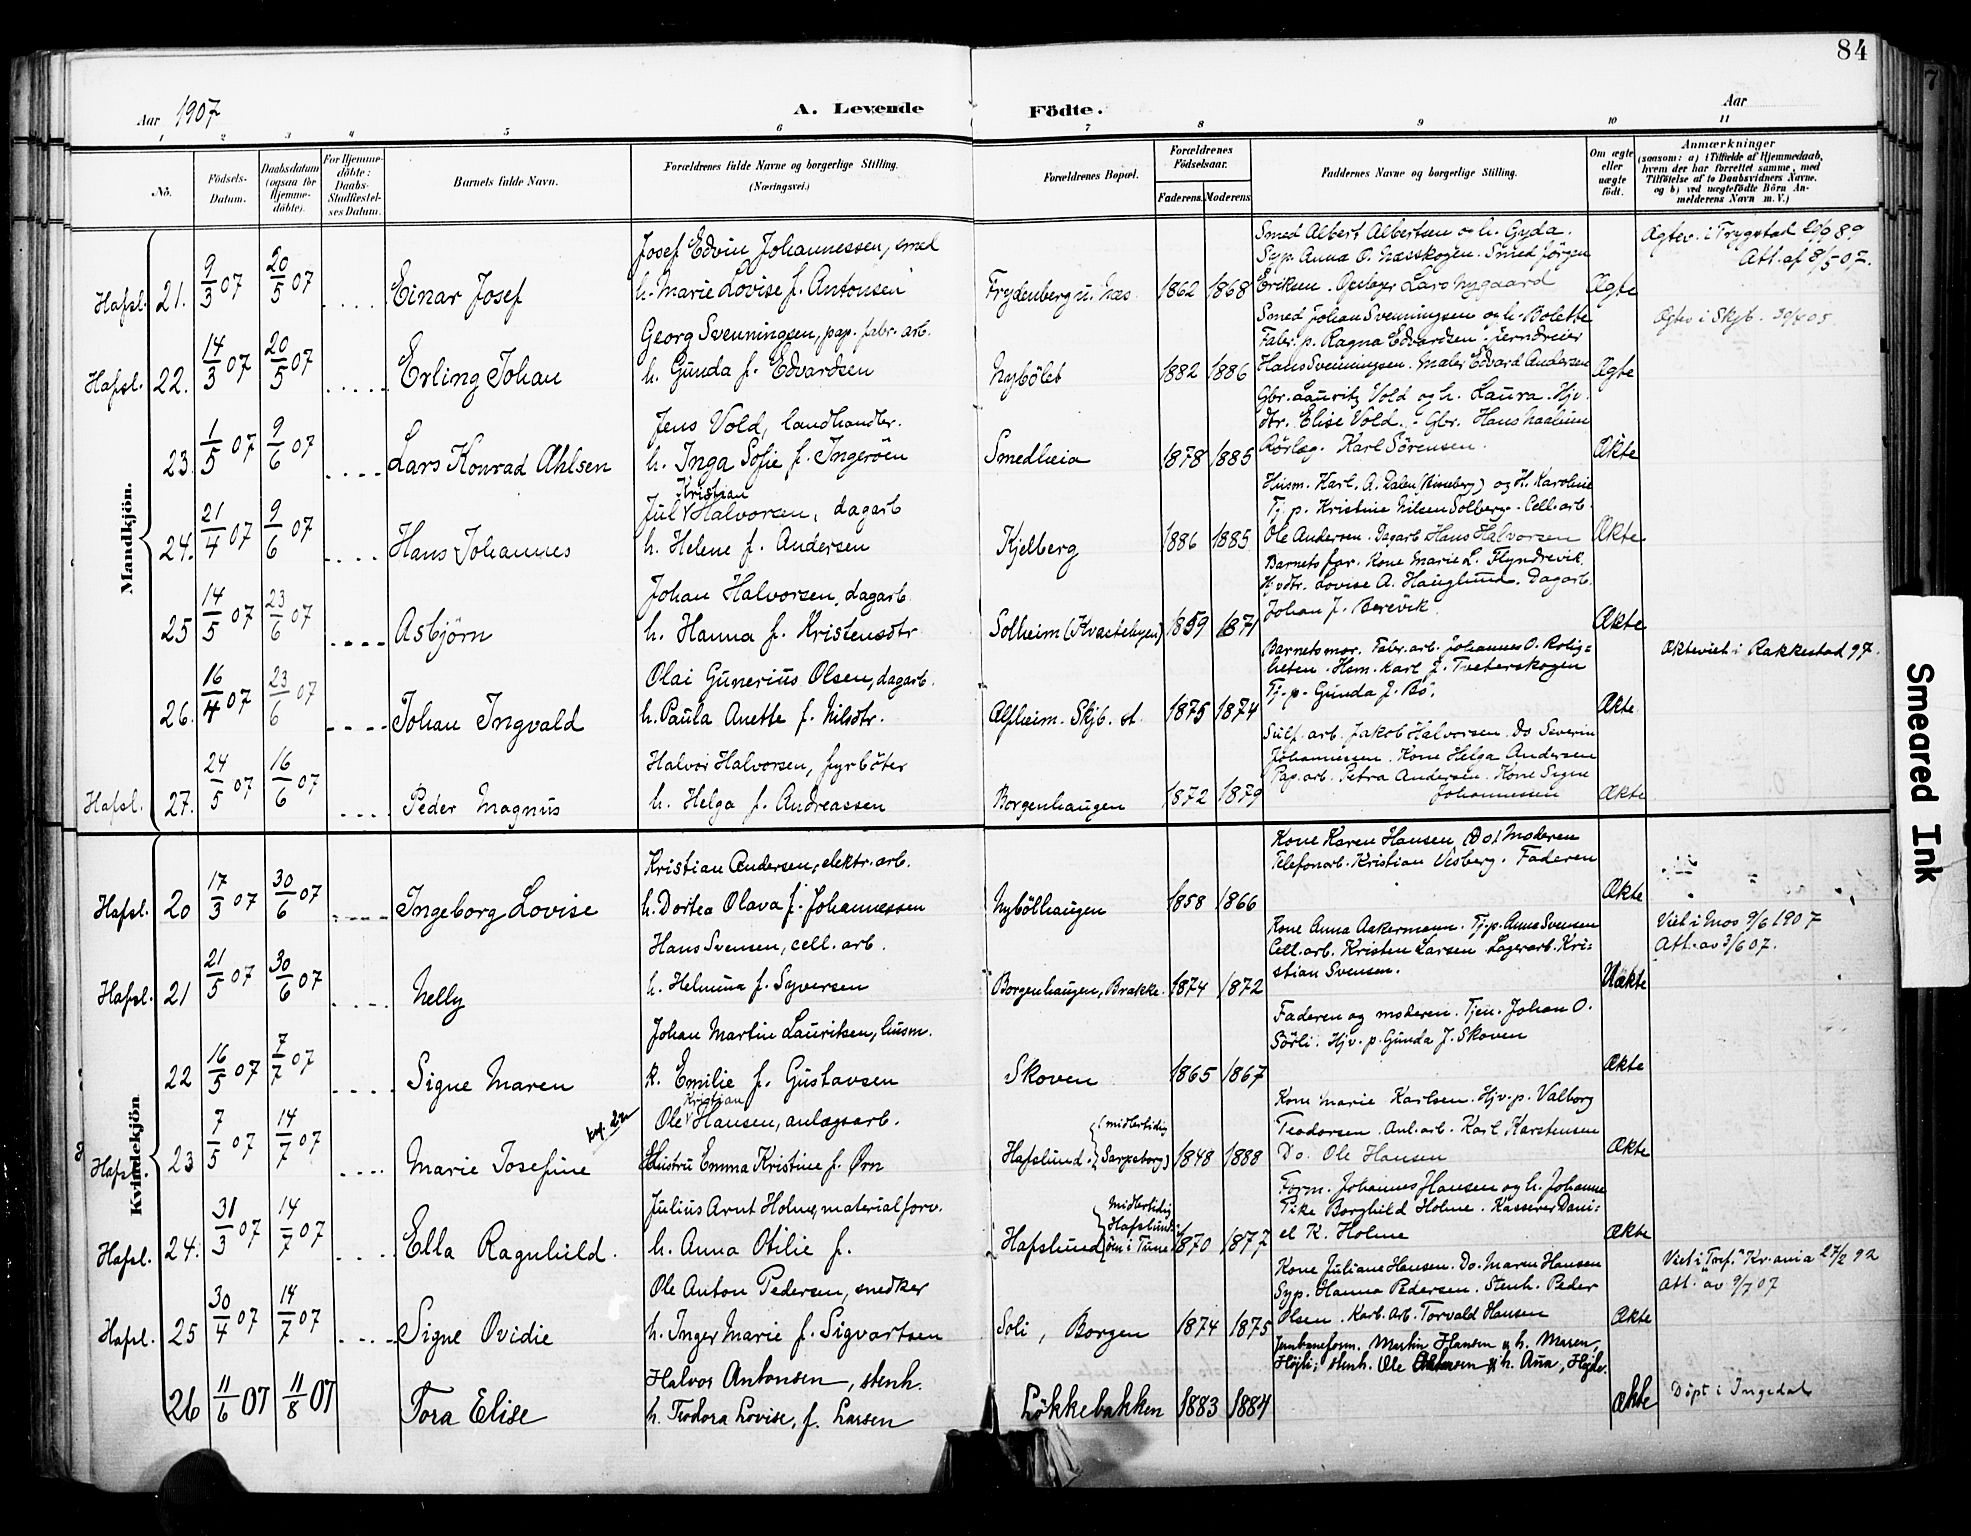 84
Aar 1907
A. Levende Födte.
Aar
1 2 3 4 5 6 7 8 9 10 11
No.
Födsels-Datum.
Daabsdatum (ogsaa for Hjemme-döbte).
For Hjemme-döbte: Daabs-Stadfæstel-ses Datum.
Barnets fulde Navn.
Forældrenes fulde Navne og borgerlige Stilling. (Næringsvei.)
Forældrenes Bopæl.
Forældrenes Födselsaar.
Faderens. Moderens.
Faddernes Navne og borgerlige Stilling.
Om ægte eller uægte födt.
Anmærkninger
(saasom: a) i Tilfælde af Hjemmedaab, hvem der har forrettet samme, med Tilföielse af to Daabsvidners Navne, og b) ved uægtefödte Börn An-melderens Navn m. V.)
Mandkjön.
Hafsl. 21. 9/3 07 20/5 07 Einar Josef
Josef Edvin Johannessen, smed
h. Marie Lovise f. Antonsen
Frydenberg u. Næs. 1862 1868
Smed Albert Albertsen og h. Gyda.
Syp. Anna O. Næsskogen. Smed Jörgen
Eriksen. Lars Nygaard
Ægte
Ægtev. i Trygstad 29/9 89
Att. af 8/5 07.
Hafsl. 22. 14/3 07 20/5 07 Erling Johan
Georg Svenningsen, pap. fabr. arb.
h. Gunda f. Edvardsen
Nybölet 1882 1886
Smed Johan Svenningsen og h. Bolette
Fabr. p. Ragna Edvardsen. jerndreier
Hans Svenningsen. Maler Edvard Andersen
Ægte
Ægtev i Skjb.
23. 1/5 07 9/6 07 Lars Konrad Ahlsen
Jens Vold, landhandler.
h. Inga Sofie f. Ingeröen
Smedheia 1878 1885
Gbr. Lauritz Vold og h. Laura. Hjv.
dtr. Elise Vold. - Gbr. Hans Naalum
Rörlæg. Karl Sörensen.
Ækte
24. 21/4 07 9/6 07 Hans Johannes
Kristian
Jul Halvorsen, dagarb
h. Helene f. Andersen
Kjelberg 1886 1885
Husm. Karl. A. Dalen og H. Karoline
Tj. p. Kristine Nilsen Solberg. Cell. arb
Ole Andersen. Dagarb Hans Halvorsen
Ækte
25 14/5 07 23/6 07 Asbjörn
Johan Halvorsen, dagarb
h. Hanna f. Kristensdtr
Solheim 1859 1871
Barnets far. Kone Marie L. Flyndrevik.
Hjvdtr. Lovise A. Hauglund. Dagarb.
Johan J. Berevik.
Ækte
26. 16/4 07 23/6 07 Johan Ingvald
Olai Gunerius Olsen, dagarb.
h. Paula Anette f. Nilsdtr.
Alfheim. Skjb. st. 1875 1874
Barnets mor. Fabr. arb. Johannes O. Rolig=
heten. Hsm. Karl J. Tveterskogen
Tj. p. Gunda J. Bö.
Ækte
Ækteviet i Rakkestad 97.
Hafsl. 27. 24/5 07 16/6 07 Peder Magnus
Halvor Halvorsen, fyrböter
h. Helga f. Andreassen
Borgenhaugen 1872 1879
Sulf. arb. Jakob Halvorsen. Do Severin
Johannessen. Kone Helga Andersen
Pap. arb. Petra Andersen. Kone Signe
Johannessen
Ækte
Kvindekjön
Hafsl. 20 17/3 07 30/6 07 Ingeborg Lovise
Kristian Andersen, elektr. arb.
h. Dortea Olava f. Johannessen
Nybölhaugen 1858 1866
Kone Karen Hansen (Do) Moderen
Telefonarb. Kristian Visberg. Faderen
Ækte
Hafsl. 21 21/5 07 30/6 07 Nelly
Hans Svensen, cell. arb.
h. Helmina f. Syversen
Borgenhaugen, Brakke. 1874 1872
Kone Anna Askermann. Tj. p. Anna Svensen
Cell. arb. Kristen Larsen. Lagerarb. Kri=
stian Svensen.
Uækte
Viet i Mos 9/6 1907
Att. av 3/6 07.
22 16/5 07 7/7 07 Signe Maren
Johan Martin Lauritsen, husm.
k. Emilie f. Gustavsen
Skoven 1865 1867
Faderen og moderen. Tjen. Johan O.
Sörli. Hjv. p. Gunda J. Skoven
Ækte
Hafsl. 23 7/5 07 14/7 07 Marie Josefine
Kristian
Ole Hansen, anlægsarb.
Hustru Emma Kristine f. Örn
Hafslund. (midlertidig Sarpsborg) 1848 1888
Kone Marie Karlsen. Hjv. p. Valborg
Teodorsen. Anl. arb. Karl Karstensen
Do. Ole Hansen
Ækte
Hafsl. 24. 31/3 07 14/7 07 Ella Ragnhild.
Julius Arnt Holme, materialforv.
h. Anna Otilie f.
Hafslund (midlertidig Hafslunds öm i Tune) 1870 1877
Form. Johannes Hansen og h. Johanne
Pike Borghild Holme. Kasserer Dani=
el K. Holme
Ækte
Hafsl. 25 30/4 07 14/7 07 Signe Ovidie
Ole Anton Pedersen, snedker
h. Inger Marie f. Sigvartsen
Soli, Borgen 1874 1875
Kone Juliane Hansen. Do. Maren Hansen
Syp. Hanna Pedersen. Stenh. Peder
Olsen. Karb. arb. Torvald Hansen
Ækte
Viet i Kr.ania 27/2 92
Att. av 9/7 07
26 11/6 07 11/8 07 Tora Elise
Halvor Antonsen, stenh.
h. Teodora Lovise, f. Larsen
Lökkebakken 1883 1884
Jernbaneform. Martin Hansen & h. Maren,
Höjli; stenh. Ole & h. Ana,
Ækte
Döpt i Ingedal
Smeared Ink
7